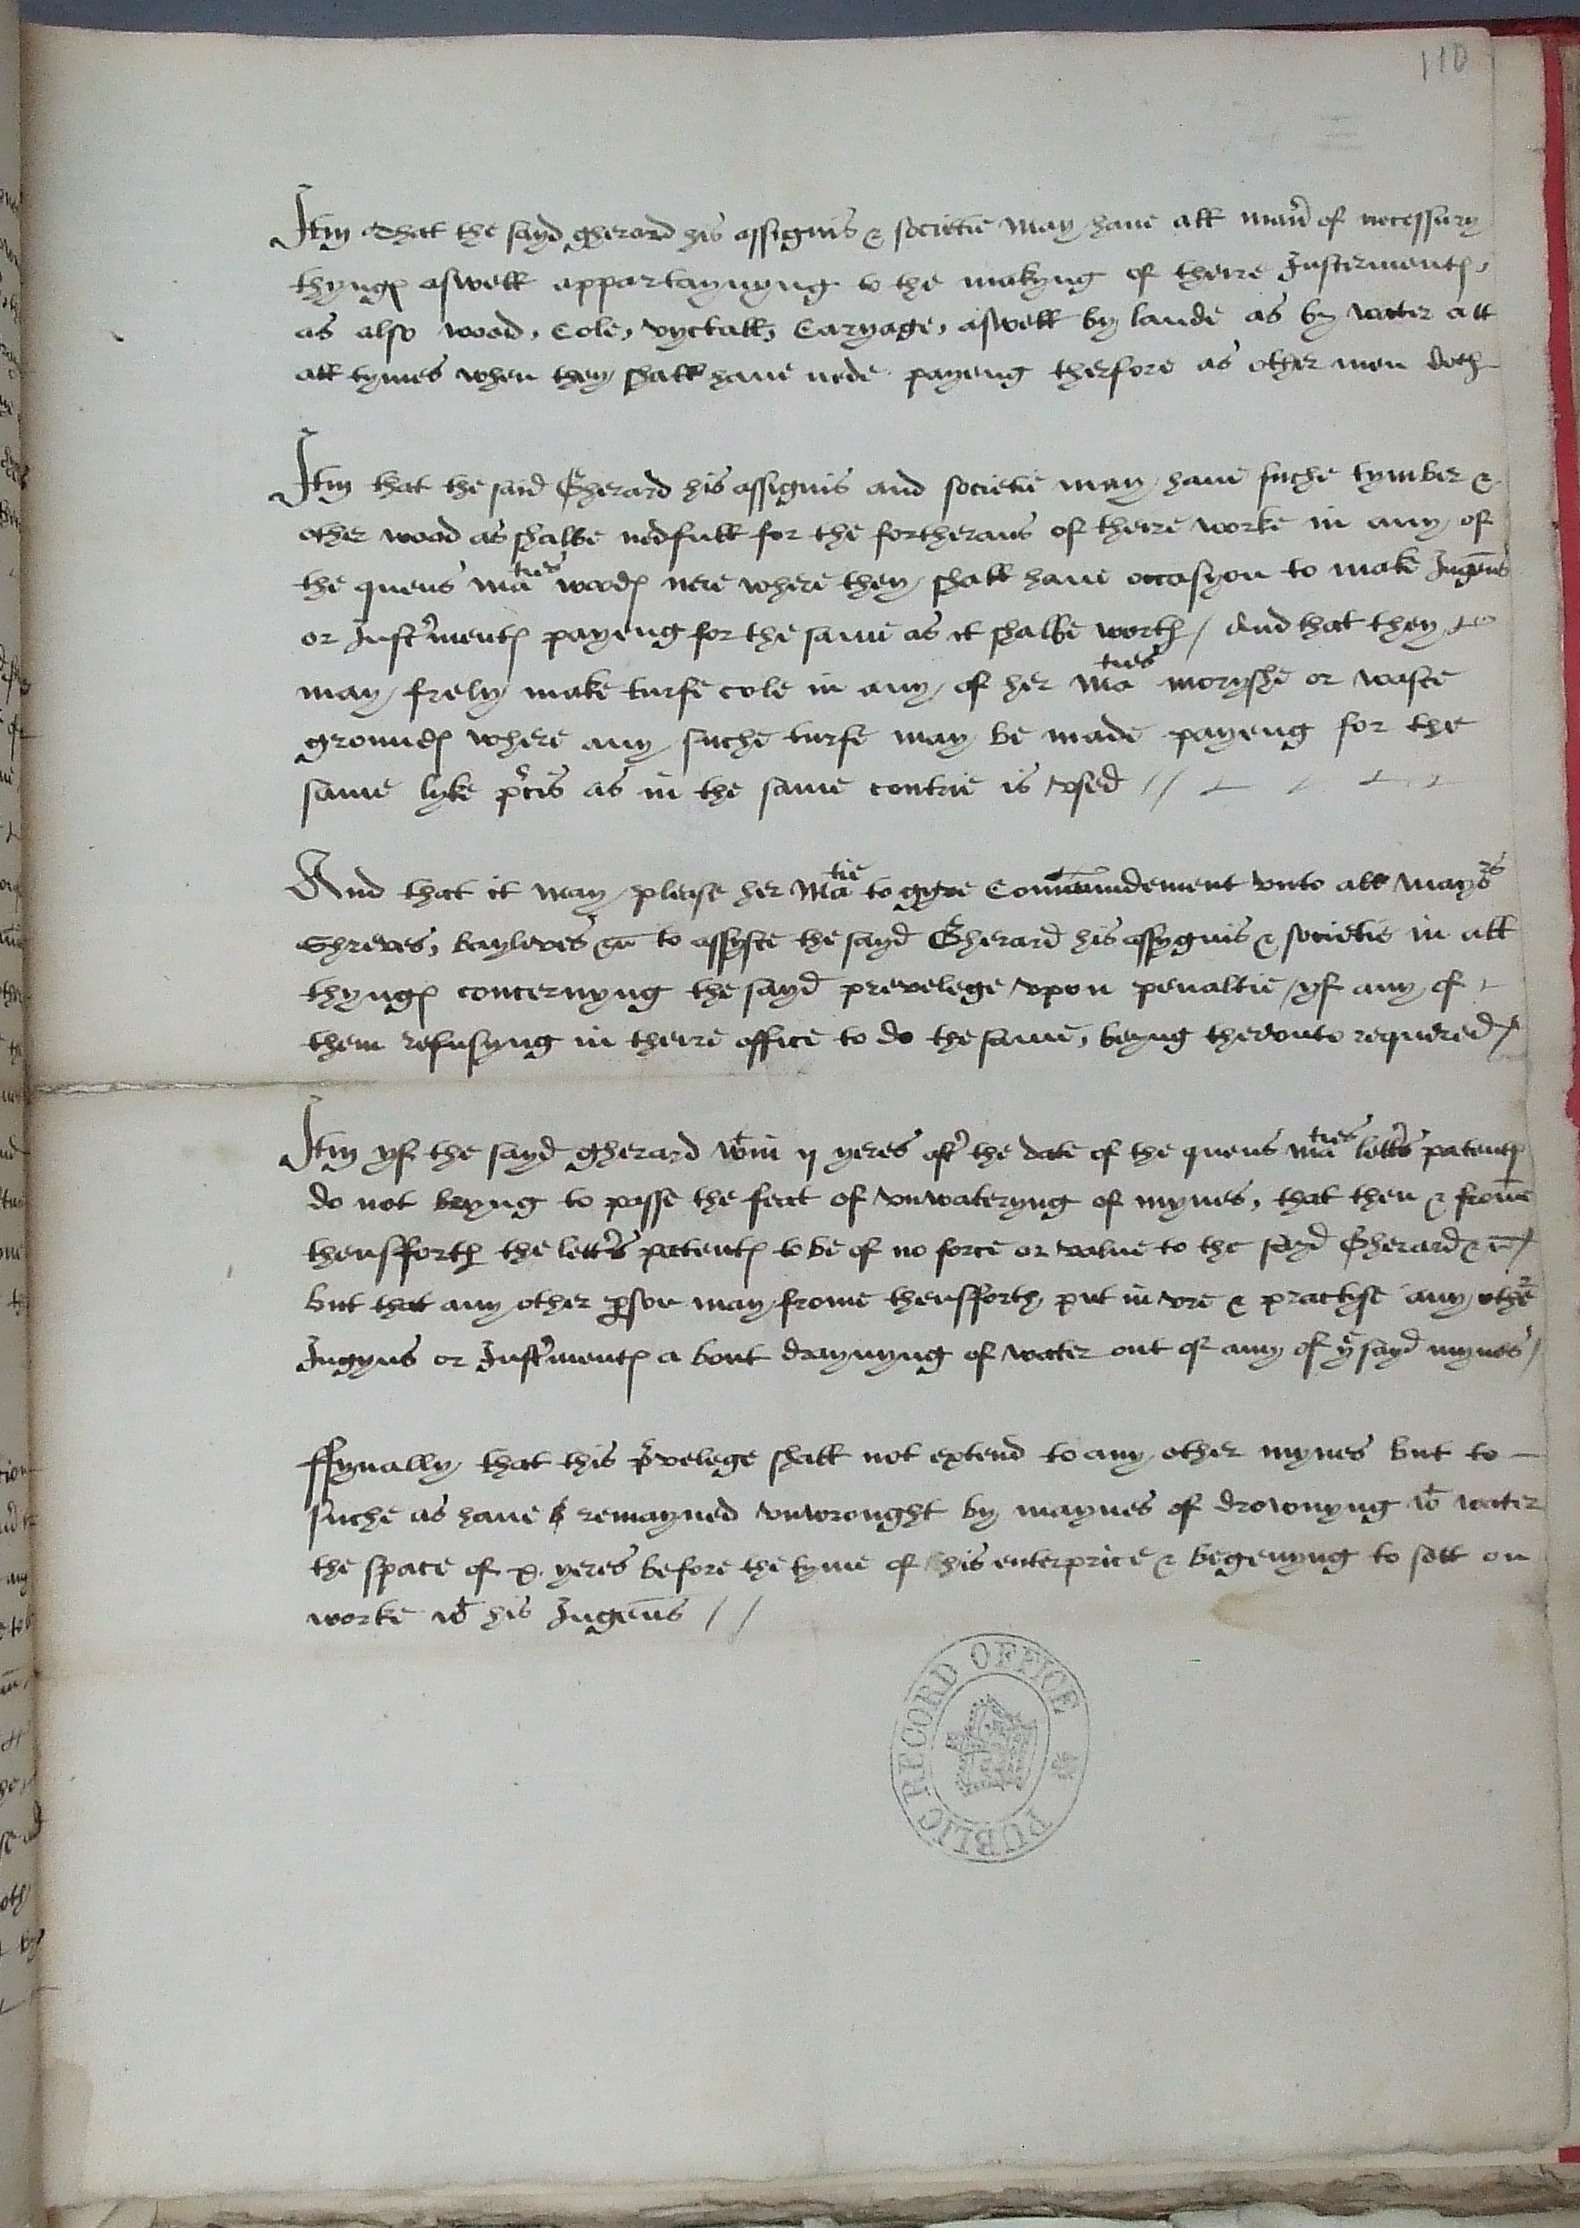 110
Itm that the sayd gherard his assignis & societie may have all man̄ of necessary
thynges aswell appartaynyng to the makyng of theire Instermentes,
as also wood, Cole, vyctall, Caryage, aswell by lande as by water att
all tymes when they shall have nede payeng therfore as other men doth
Itm that the said Gherard his assignis and societie may have suche tymber &
other wood as shalbe nedfull for the fortherans of theire worke in any of
the quens Ma^ties woodes nere where they shall have occasyon to make Ingēns
or Instrmentes payeng for the same as it shalbe worth / And that they
may frely make turfe cole in any of her Ma^ties moryshe or waste
groundes where any suche turfe may be made payeng for the
same lyke prcis as in the same contrie is vsed //
And that it may please her Ma^tie to gyve Comaundement vnto all mayrs
Shreves, bayleves &c to assyste the sayd Gherard his assygnis & societie in all
thynges concernyng the sayd prevelege vpon penaltie / yf any of
them refusyng in theire office to do the same, beyng thervnto requered /
Itm yf the sayd gherard wtin ij yeres aftr the date of the quens Ma^ties lettrs patentes
do not bryng to passe the feat of vnwateryng of mynes, that then & frome
thensfforth the lettrs patentes to be of no force or value to the sayd Gherard &c /
but that any other pson may frome thensfforth put in vre & practyse any other
Ingyns or Instrmentes a bout draynyng of water out of any of ye sayd mynes /
ffynally that this prvelege shall not extend to any other mynes but to
suche as have remayned vnwrought by maynes of drownyng wt water
the space of .x. yeres before the tyme of his enterprice & begenyng to sett on
worke wt his Ingēns //
PUBLIC RECORD OFFICE